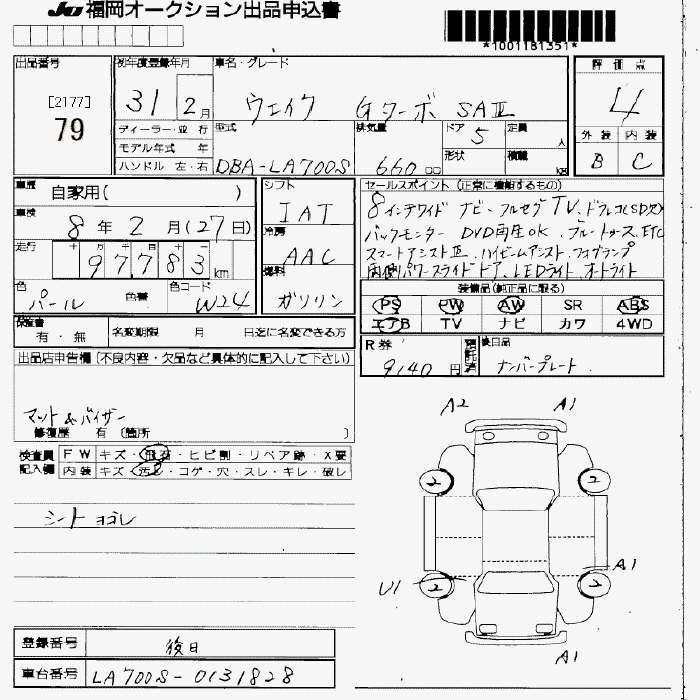 JU 福岡オークション出品申込書
*1001181351*
出品番号
[2177]
79
初年度登録年月
31 2月
車名・グレード
ウェイク Gターボ SAⅢ
評価点
4
ディーラー・並行
モデル年式 年
ハンドル 左・右
型式
DBA-LA700S
排気量
660 cc
ドア
5
形状
定員
人
積載
kg
外装 内装
B C
車歴
自家用( )
車検
8年 2月(27日)
走行
十 万 千 百 十 一
97783 km
色
パール
色替
色コード
W24
シフト
IAT
冷房
AAC
燃料
ガソリン
セールスポイント (正常に機能するもの)
8インチワイド ナビ・フルセグTV、ドラレコ(SD欠)
バックモニター DVD再生OK、ブルートゥース、ETC
スマートアシストⅢ、ハイビームアシスト、フォグランプ
両側パワースライドドア、LEDライト、オートライト
装備品(純正品に限る)
PS PW AW SR ABS
エアB TV ナビ カワ 4WD
保証書
有・無
名変期限 月 日迄に名変できる方
R券
9140円
預託済
後日品
ナンバープレート
出品店申告欄(不良内容・欠品など具体的に記入して下さい)
マット&バイザー
修復歴 有 (箇所 )
検査員
記入欄
FW キズ・飛石・ヒビ割・リペア跡・X要
内装 キズ・汚れ・コゲ・穴・スレ・キレ・破レ
シートヨゴレ
A2 A1
2 2
A1
U1 2 2
A1
登録番号
後日
車台番号
LA700S-0131828